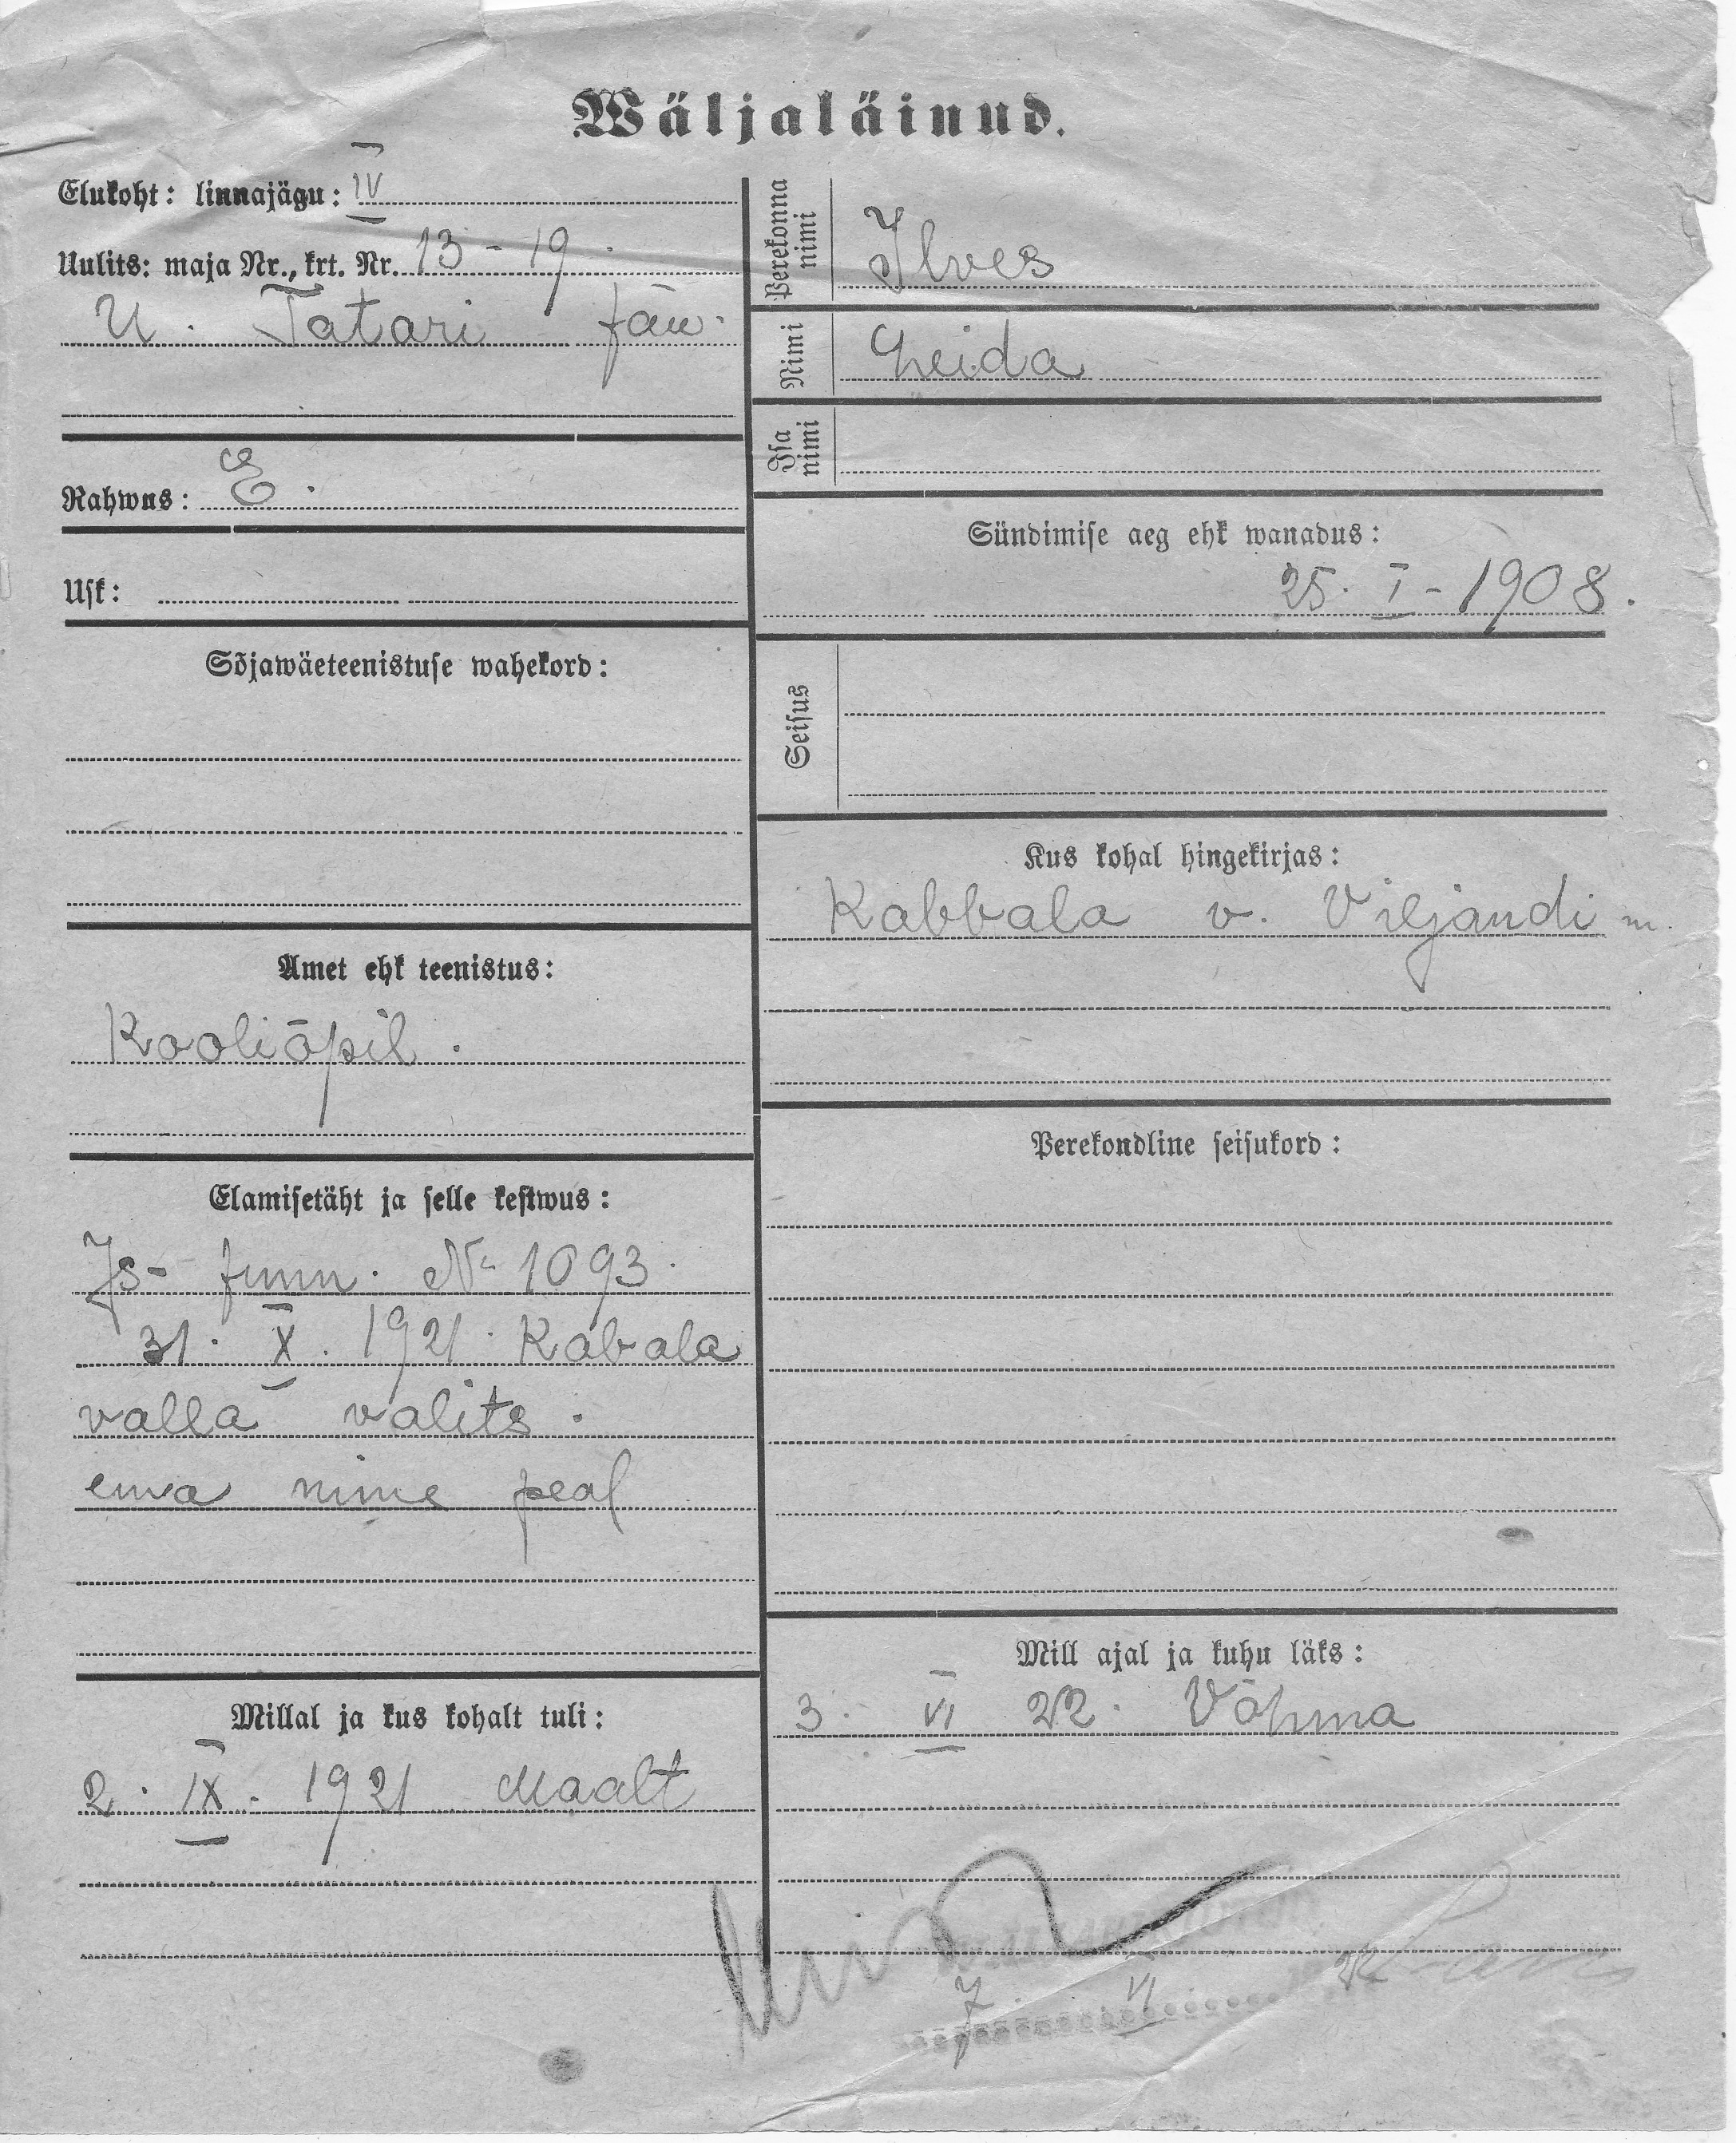 Wäljaläinud.
Elukoht: linnajägu: IV
Uulits: maja Nr., krt. Nr. 13 - 19.
U. Tatari tän.
Rahwus: E.
Usk:
Sõjawäeteenistuse wahekord:
Amet ehk teenistus:
Kooliõpil.
Elamisetäht ja selle kestwus:
Is- tunn. No 1093.
31. X. 1921. Kabala
valla valits.
ema nime peal
Millal ja kus kohalt tuli:
2. IX. 1921 Maalt
Perekonna nimi Ilves
Nimi Leida
Isa nimi
Sündimise aeg ehk wanadus:
25. I - 1908.
Seisus
Kus kohal hingekirjas:
Kabbala v. Viljandi m.
Perekondline seisukord:
Mill ajal ja kuhu läks:
3. VI 22. Võhma
7. VI 22